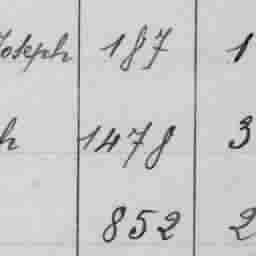 Joseph 187 1
h 1478 3
852 2